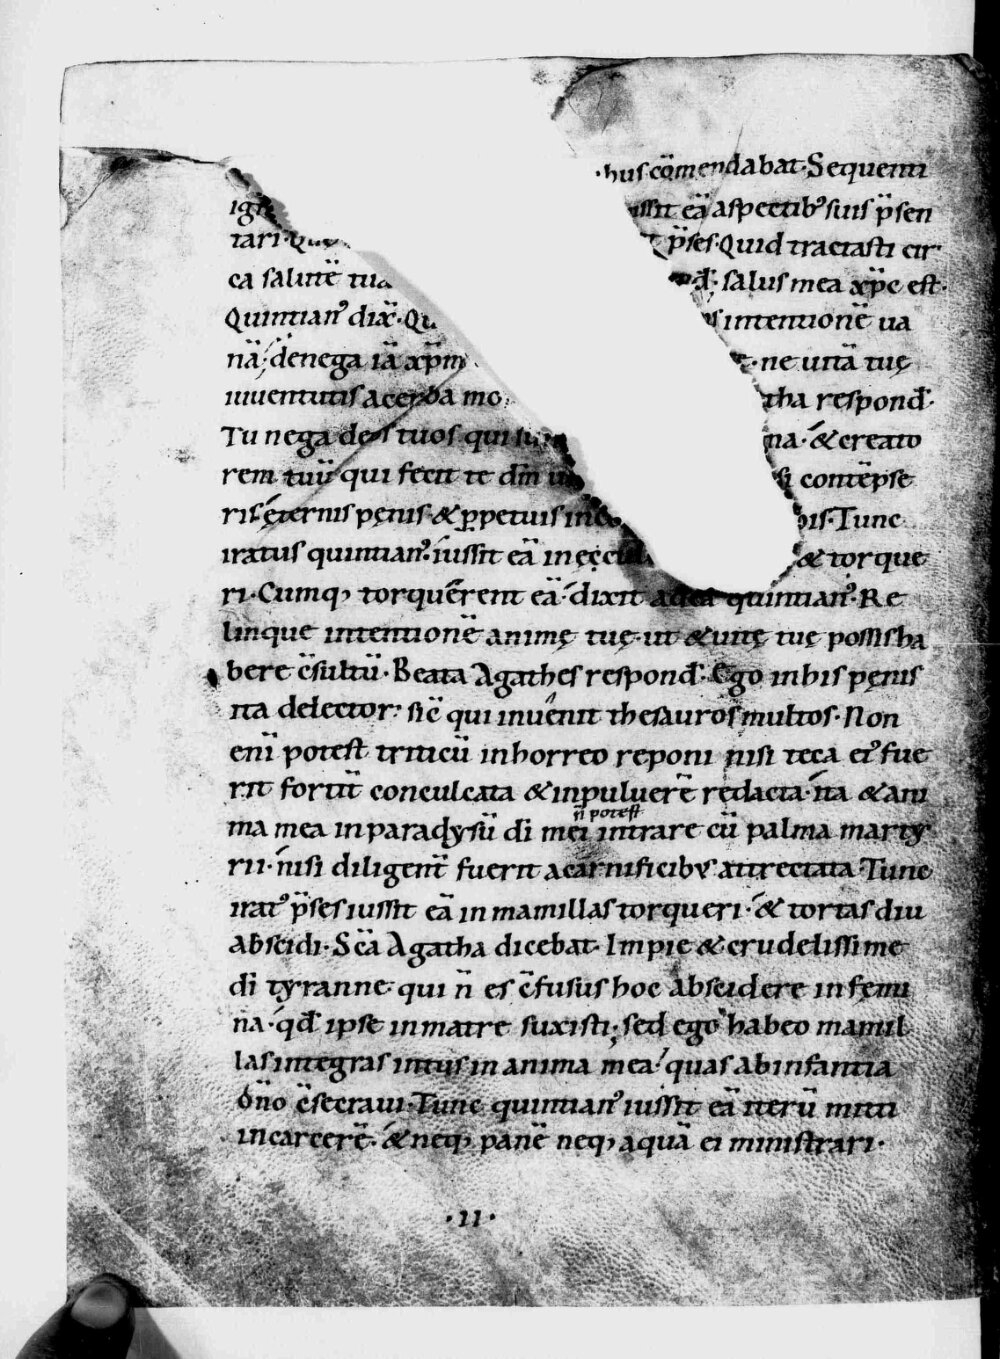 bus cōmendabat. Sequenti
ēā aspectib᾽ suis p̄sen
tari. p̄ses. Quid tractasti cir
ca salutē tua đ. salus mea xp̄c est.
Quintian᾽ dix̄. intentionē ua
nā, denega iā xp̄m ne uitā tuę
iuuentutis acerba mo tha responđ.
Tu nega deos tuos. qui na. & creato
rem tuū qui fecit te dn̄m si contēpse
ris ęternis pęnis & ꝑpetuis Tunc
iratus quintian᾽. iussit eā in & torque
ri. Cumq; torquērent eā. dixit ad eā quintian᾽. Re
linque intentionē animę tuę. ut & uitę tuę possis ha
bere c̄sultū. Beata Agathes responđ. Ego in his pęnis
ita delector. sic̄ qui inuenit thesauros multos. Non
eni potest triticū in horreo reponi nisi teca ei᾽ fue
rit fortit̄ conculcata & in puluerē redacta. ita & ani
n̄ potest
ma mea in paradysū di mei intrare cū palma marty
rii. nisi diligent̄ fuerit a carnificibus attrectata. Tunc
irat᾽ p̄ses iussit eā in mamillas torqueri. & tortas diu
abscidi. Sc̄a Agatha dicebat. Impie & crudelissime
di tyranne. qui n̄ es c̄fusus hoc abscidere in femi
na. qđ ipse in matre suxisti. sed ego habeo mamil
las integras intus in anima mea. quas ab infantia
dn̄o c̄secraui. Tunc quintian᾽ iussit eā iterū mitti
in carcerē. & neq; panē neq; aquā ei ministrari.
.11.